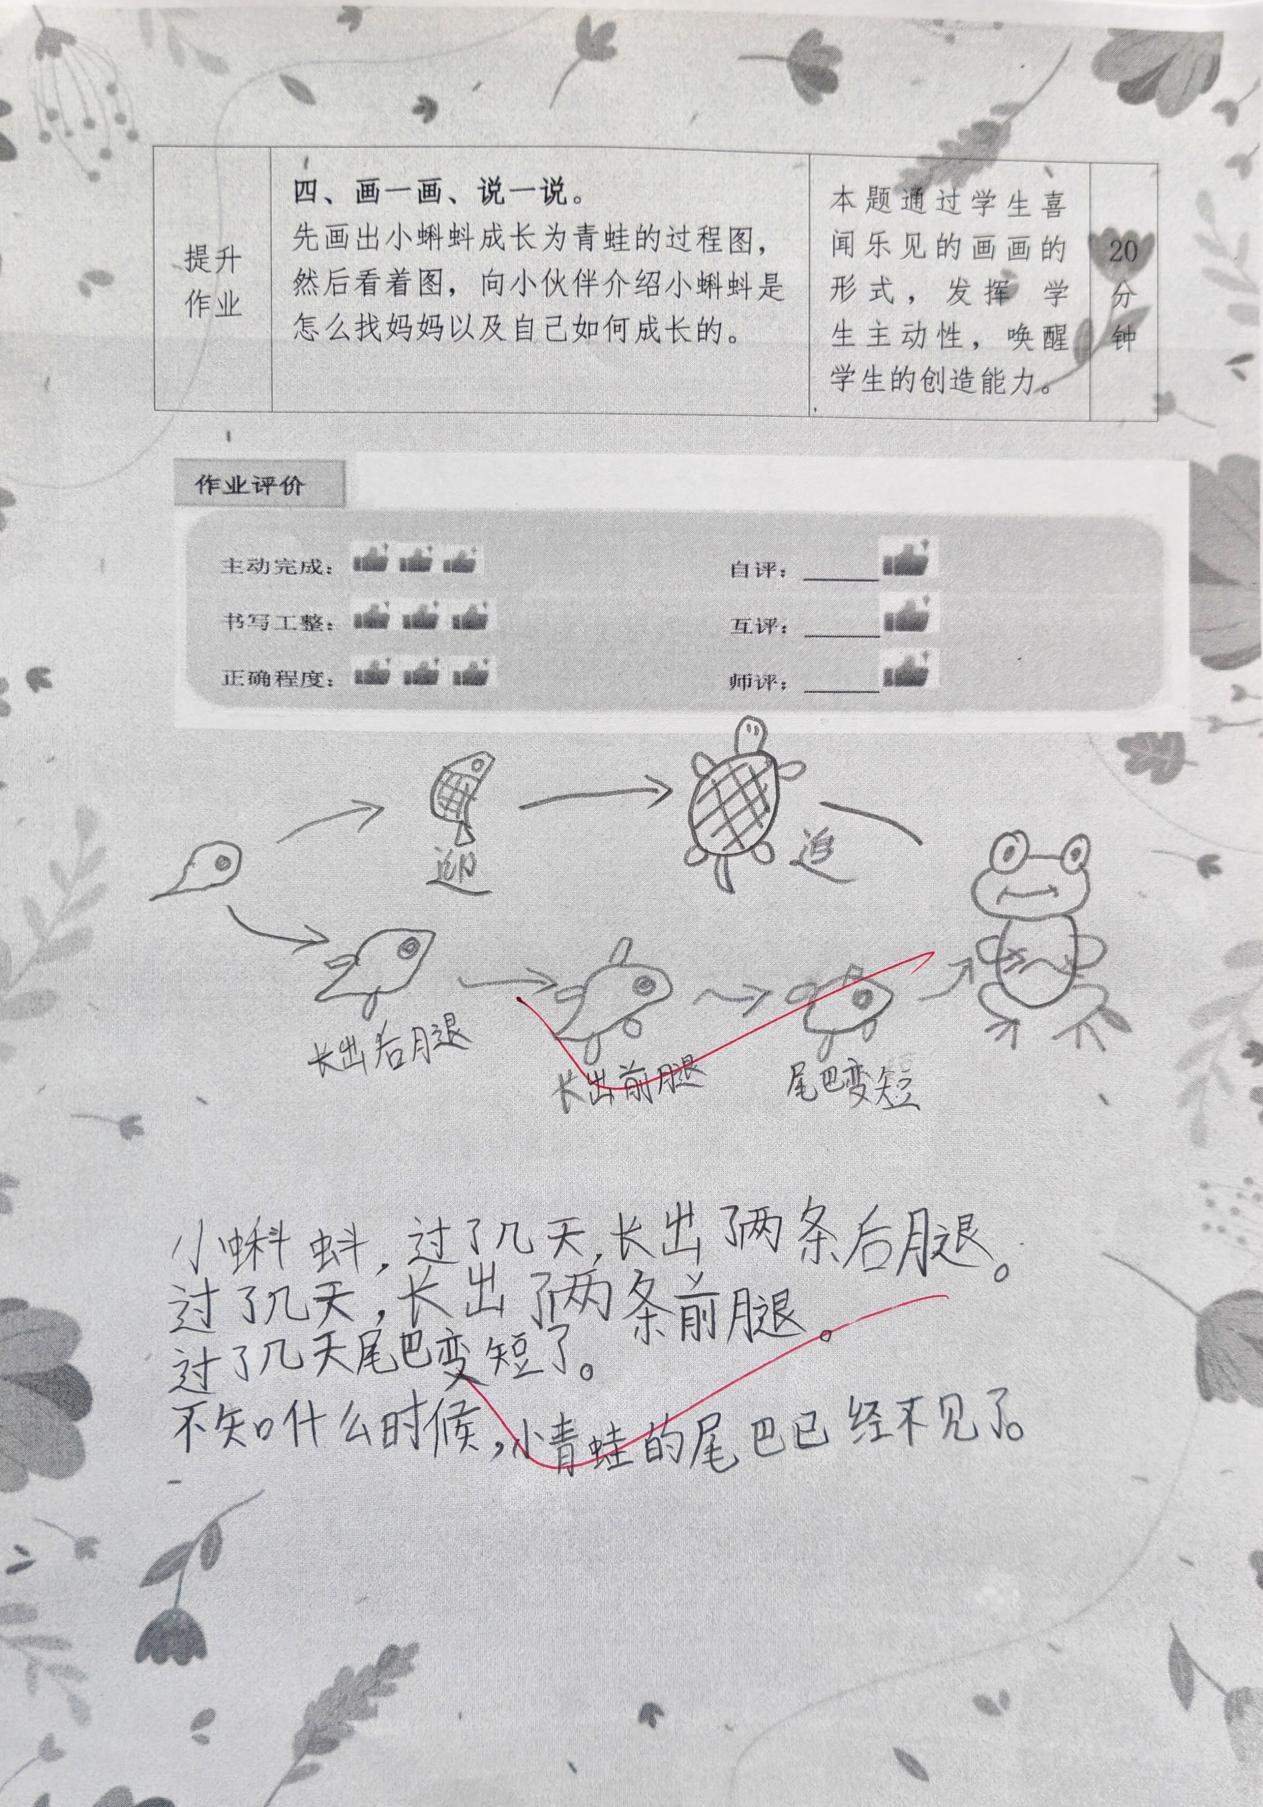 提升
作业
四、画一画、说一说。
先画出小蝌蚪成长为青蛙的过程图，
然后看着图，向小伙伴介绍小蝌蚪是
怎么找妈妈以及自己如何成长的。
本题通过学生喜
闻乐见的画画的
形式，发挥 学
生主动性，唤醒
学生的创造能力。
20
分
钟
作业评价
主动完成：
自评：
书写工整：
互评：
正确程度：
师评：
迎
追
长出后腿
长出前腿
尾巴变短
小蝌蚪，过了几天，长出了两条后腿。
过了几天，长出了两条前腿。
过了几天尾巴变短了。
不知什么时候，小青蛙的尾巴已经不见了。